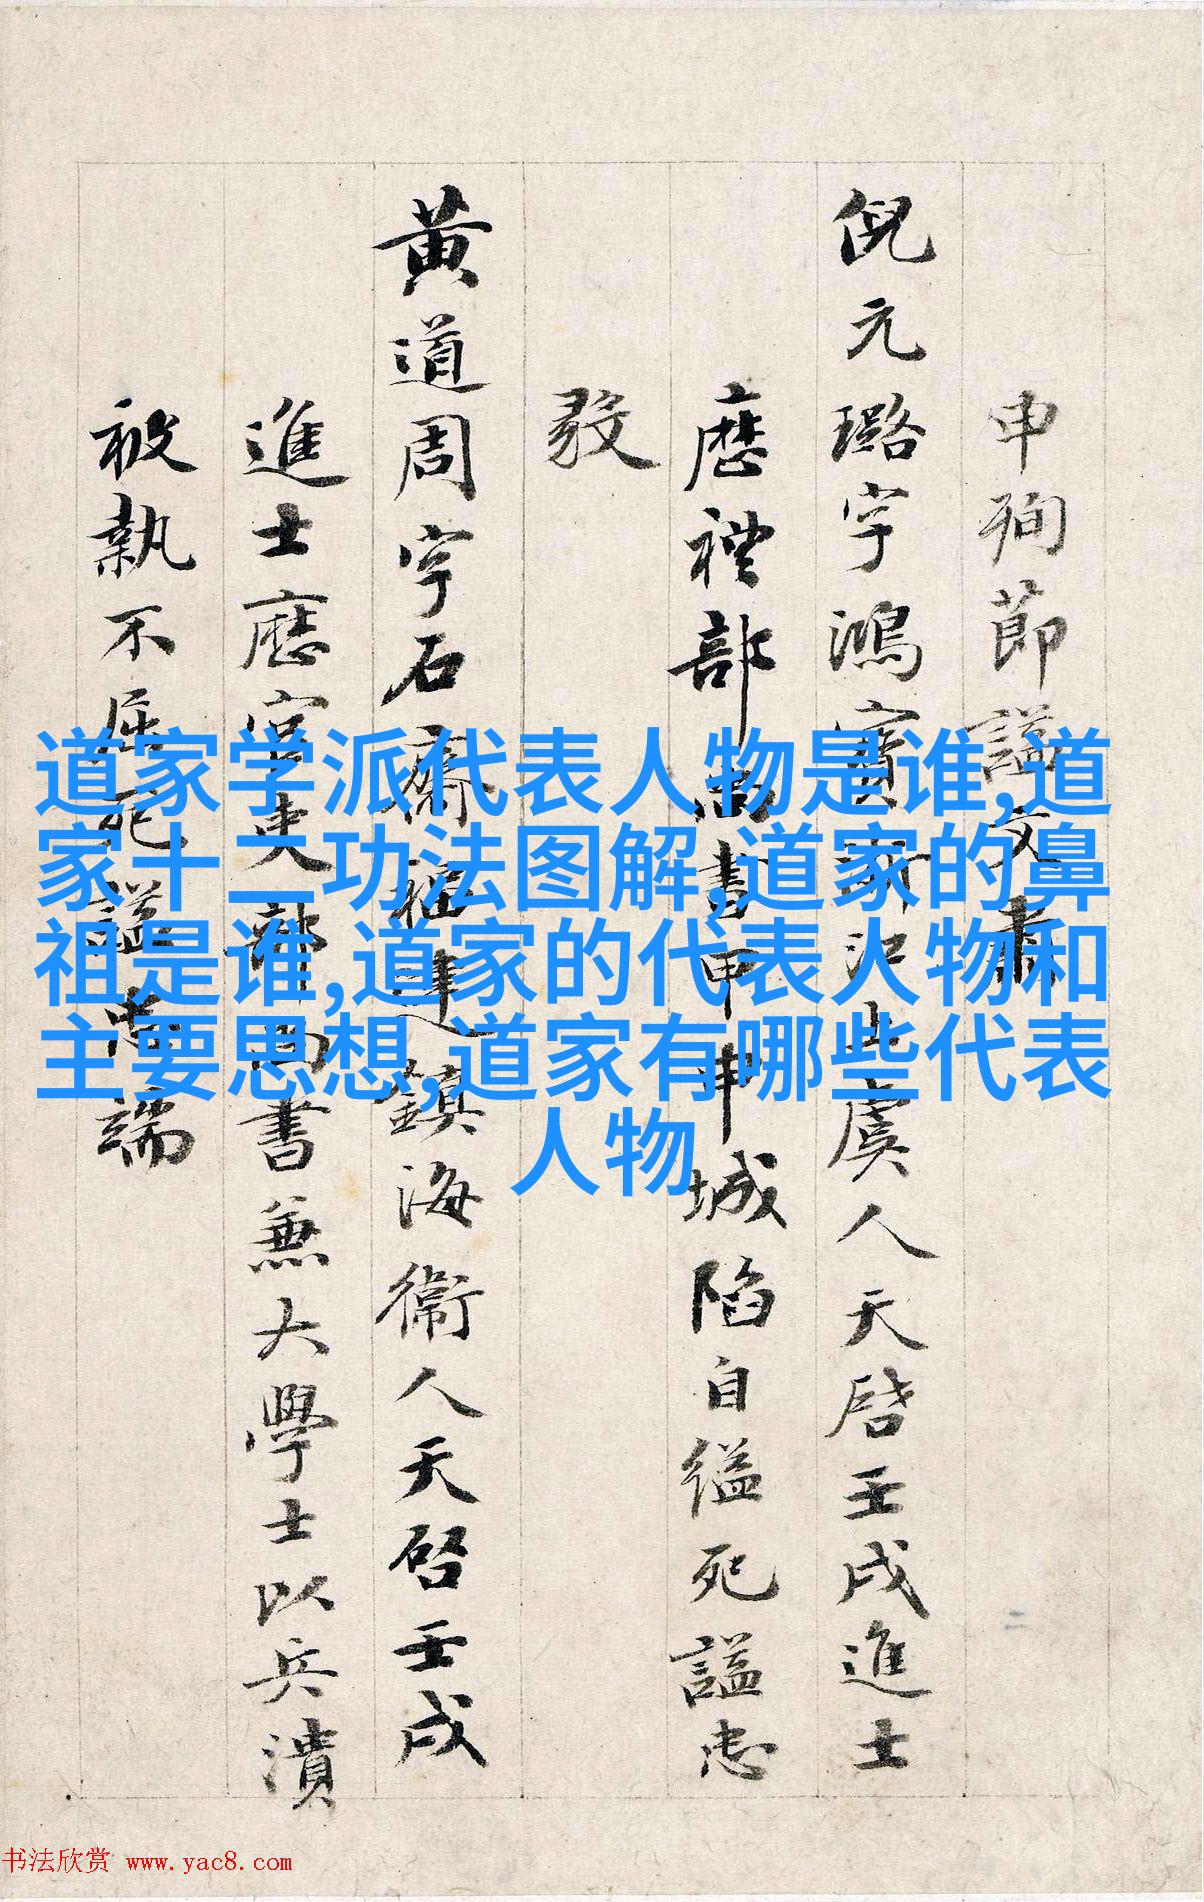 申殉節謚文肅
倪元璐字鴻寶浙江上虞人天啓壬戌進士
歷禮部尚書甲申城陷自縊死謚忠
毅
黄道周字石齋福建鎮海衛人天啓壬戌
進士歷官吏部尚書兼大學士以兵潰
被執不屈死謚忠端
道家学派代表人物是谁,道
家十二功法图解,道家的鼻
祖是谁,道家的代表人物和
主要思想,道家有哪些代表
人物
书法欣赏 www.yac8.com